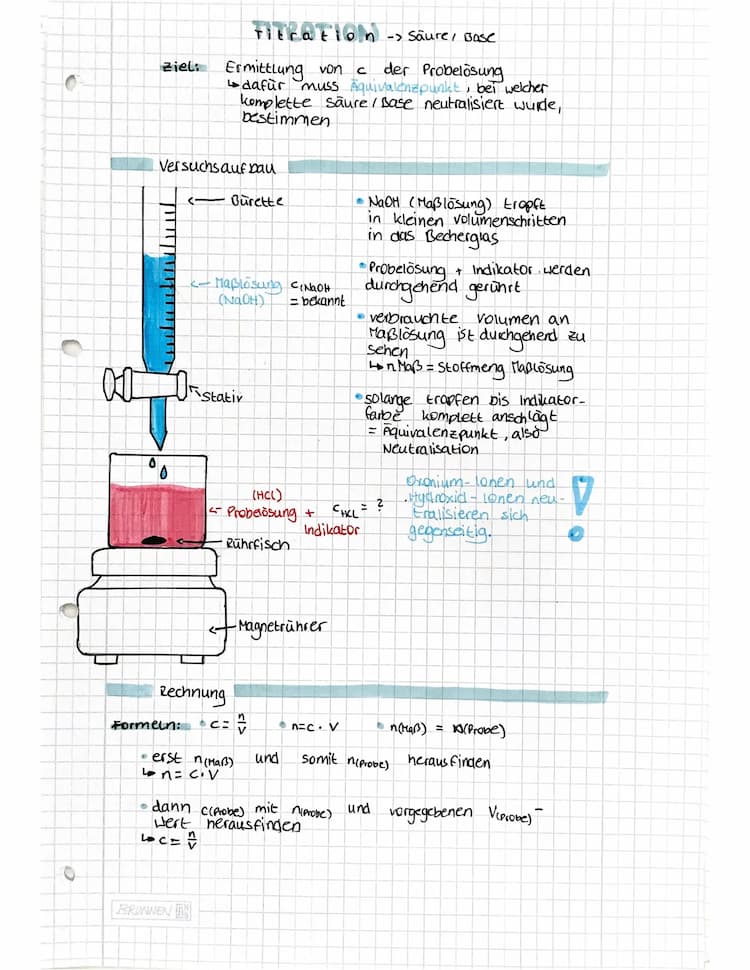 Titration -> Säure/Base
Ziel: Ermittlung von c der Probelösung
↳ dafür muss Äquivalenzpunkt, bei welcher
komplette Säure/Base neutralisiert wurde,
bestimmen
Versuchsaufbau
Bürette
Maßlösung
(NaOH)
cNaOH
= bekannt
Stativ
(HCl)
Probelösung +
Indikator
cHCL = ?
Rührfisch
Magnetrührer
• NaOH (Maßlösung) tropft
in kleinen Volumenschritten
in das Becherglas
• Probelösung + Indikator werden
durchgehend gerührt
• verbrauchte Volumen an
Maßlösung ist durchgehend zu
sehen
↳ n Maß = Stoffmeng Maßlösung
• solange tropfen bis Indikator-
farbe komplett anschlägt
= Äquivalenzpunkt, also
Neutralisation
Oxonium-Ionen und
Hydroxid-Ionen neu-
tralisieren sich
gegenseitig. !
Rechnung
Formeln: • c = n/V • n = c · V • n(Maß) = n(Probe)
• erst n(Maß) und somit n(Probe) herausfinden
↳ n = c · V
• dann c(Probe) mit n(Probe) und vorgegebenen V(Probe)-
Wert herausfinden
↳ c = n/V
BRUNNEN